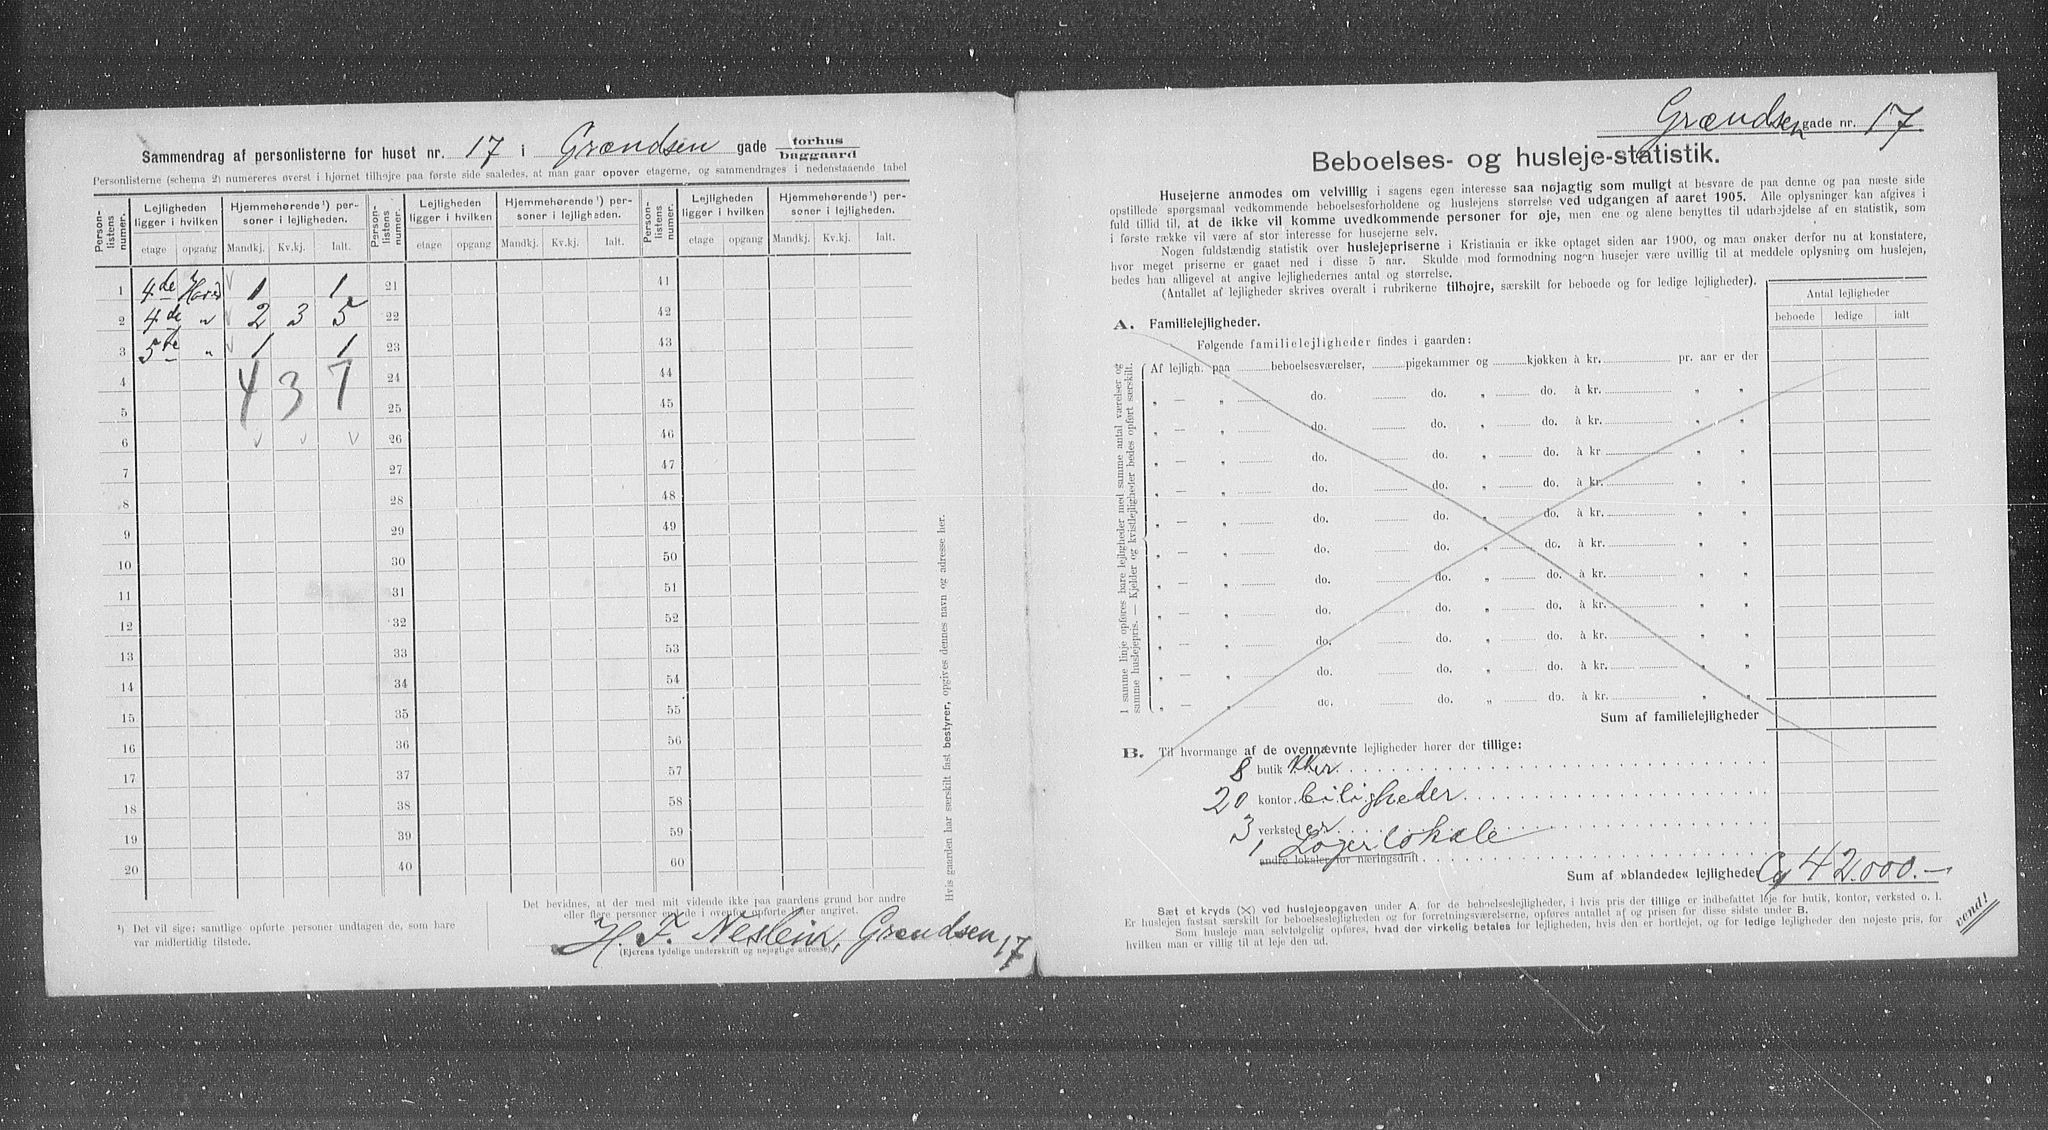 Sammendrag af personlisterne for huset nr. 17 i Grændsen gade forhus
baggaard
Personlisterne (schema 2) numereres øverst i hjørnet tilhøjre paa første side saaledes, at man gaar opover etagerne, og sammendrages i nedenstaaende tabel
Person-listens numer. Lejligheden ligger i hvilken Hjemmehørende¹) personer i lejligheden. Person-listens numer. Lejligheden ligger i hvilken Hjemmehørende¹) personer i lejligheden. Person-listens numer. Lejligheden ligger i hvilken Hjemmehørende¹) personer i lejligheden.
etage opgang Mandkj. Kv.kj. Ialt. etage opgang Mandkj. Kv.kj. Ialt. etage opgang Mandkj. Kv.kj. Ialt.
1 4de 1 1 21 41
2 4de „ 2 3 5 22 42
3 5te „ 1 1 23 43
4 4 3 7 24 44
5 25 45
6 v v v 26 46
7 27 47
8 28 48
9 29 49
10 30 50
11 31 51
12 32 52
13 33 53
14 34 54
15 35 55
16 36 56
17 37 57
18 38 58
19 39 59
20 40 60
Hvis gaarden har særskilt fast bestyrer, opgives dennes navn og adresse her.
¹) Det vil sige: samtlige opførte personer undtagen de, som bare
var midlertidig tilstede.
Det bevidnes, at der med mit vidende ikke paa gaardens grund bor andre
eller flere personer end de i ovenfor opførte lister angivet.
H. F. Neslein, Grændsen 17
(Ejerens tydelige underskrift og nøjagtige adresse)
Grændsen gade nr. 17
Beboelses- og husleje-statistik.
Husejerne anmodes om velvillig i sagens egen interesse saa nøjagtig som muligt at besvare de paa denne og paa næste side
opstillede spørgsmaal vedkommende beboelsesforholdene og huslejens størrelse ved udgangen af aaret 1905. Alle oplysninger kan afgives i
fuld tillid til, at de ikke vil komme uvedkommende personer for øje, men ene og alene benyttes til udarbejdelse af en statistik, som
i første række vil være af stor interesse for husejerne selv.
Nogen fuldstændig statistik over huslejepriserne i Kristiania er ikke optaget siden aar 1900, og man ønsker derfor nu at konstatere,
hvor meget priserne er gaaet ned i disse 5 aar. Skulde mod formodning nogen husejer være uvillig til at meddele oplysning om huslejen,
bedes han alligevel at angive lejlighedernes antal og størrelse.
(Antallet af lejligheder skrives overalt i rubrikerne tilhøjre, særskilt for beboede og for ledige lejligheder).
Antal lejligheder
beboede ledige ialt
A. Familielejligheder.
Følgende familielejligheder findes i gaarden:
I samme linje opføres bare lejligheder med samme antal værelser og
samme huslejepris. — Kjelder og kvistlejligheder bedes opført særskilt.
Af lejligh. paa beboelsesværelser, pigekammer og kjøkken à kr. pr. aar er der
„ — „ do. do. „ do. à kr. „ „
„ — „ do. do. „ do. à kr. „ „
„ — „ do. do. „ do. à kr. „ „
„ — „ do. do. „ do. à kr. „ „
„ — „ do. do. „ do. à kr. „ „
„ — „ do. do. „ do. à kr. „ „
„ — „ do. do. „ do. à kr. „ „
„ — „ do. do. „ do. à kr. „ „
„ — „ do. do. „ do. à kr. „ „
„ — „ do. do. „ do. à kr. „ „
„ — „ do. do. „ do. à kr. „ „
Sum af familielejligheder
B. Til hvormange af de ovennævnte lejligheder hører der tillige:
8 butikker
20 kontor
3 verksteder
1 Lagerlokale
andre lokaler for næringsdrift
Sum af »blandede« lejligheder Ca 42.000.—
Sæt et kryds (X) ved huslejeopgaven under A. for de beboelseslejligheder, i hvis pris der tillige er indbefattet leje for butik, kontor, verksted o. l.
Er huslejen fastsat særskilt for beboelseslejligheden og for forretningsværelserne, opføres antallet af og prisen for disse sidste under B.
Som husleje man selvfølgelig opføres, hvad der virkelig betales for lejligheden, hvis den er bortlejet, og for ledige lejligheder den nøjeste pris, for
hvilken man er villig til at leje den ud.
vend!